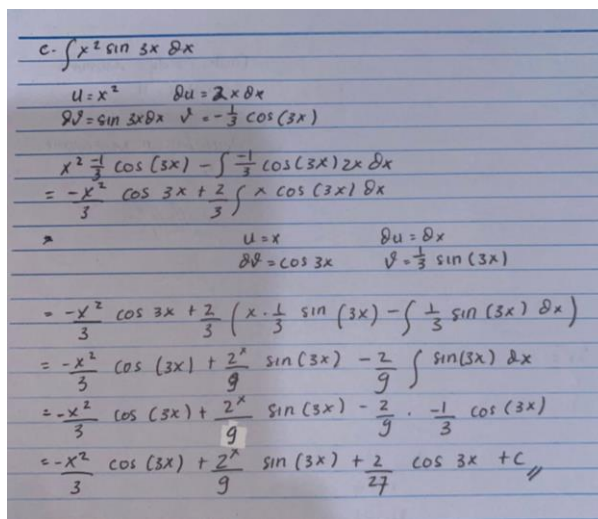 c. ∫ x² sin 3x ∂x
u = x² ∂u = 2x ∂x
∂v = sin 3x ∂x v = -1/3 cos (3x)
x² -1/3 cos (3x) - ∫ -1/3 cos (3x) 2x ∂x
= -x²/3 cos 3x + 2/3 ∫ x cos (3x) ∂x
u = x ∂u = ∂x
∂v = cos 3x v = 1/3 sin (3x)
= -x²/3 cos 3x + 2/3 ( x · 1/3 sin (3x) - ∫ 1/3 sin (3x) ∂x )
= -x²/3 cos (3x) + 2x/9 sin (3x) - 2/9 ∫ sin (3x) ∂x
= -x²/3 cos (3x) + 2x/9 sin (3x) - 2/9 · -1/3 cos (3x)
= -x²/3 cos (3x) + 2x/9 sin (3x) + 2/27 cos 3x + C //